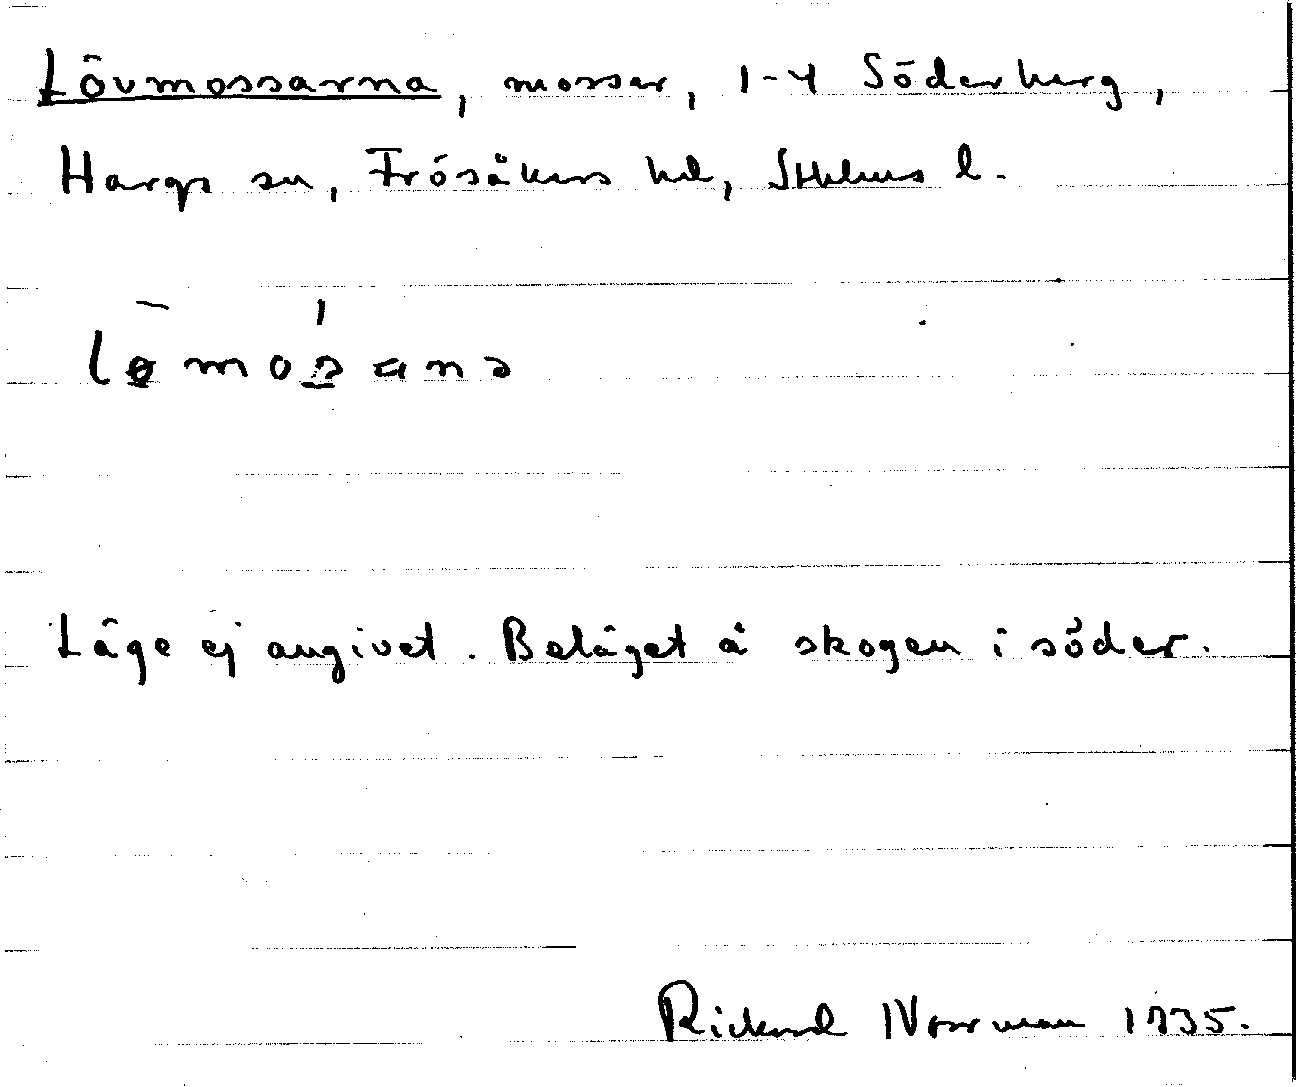 Lövmossarna, mossar, 1-4 Söderberg,
Hargs sn, Frösåkers hd, Sthlms l.
Läge ej angivet. Beläget å skogen i söder.
Rickard Norrman 1935.